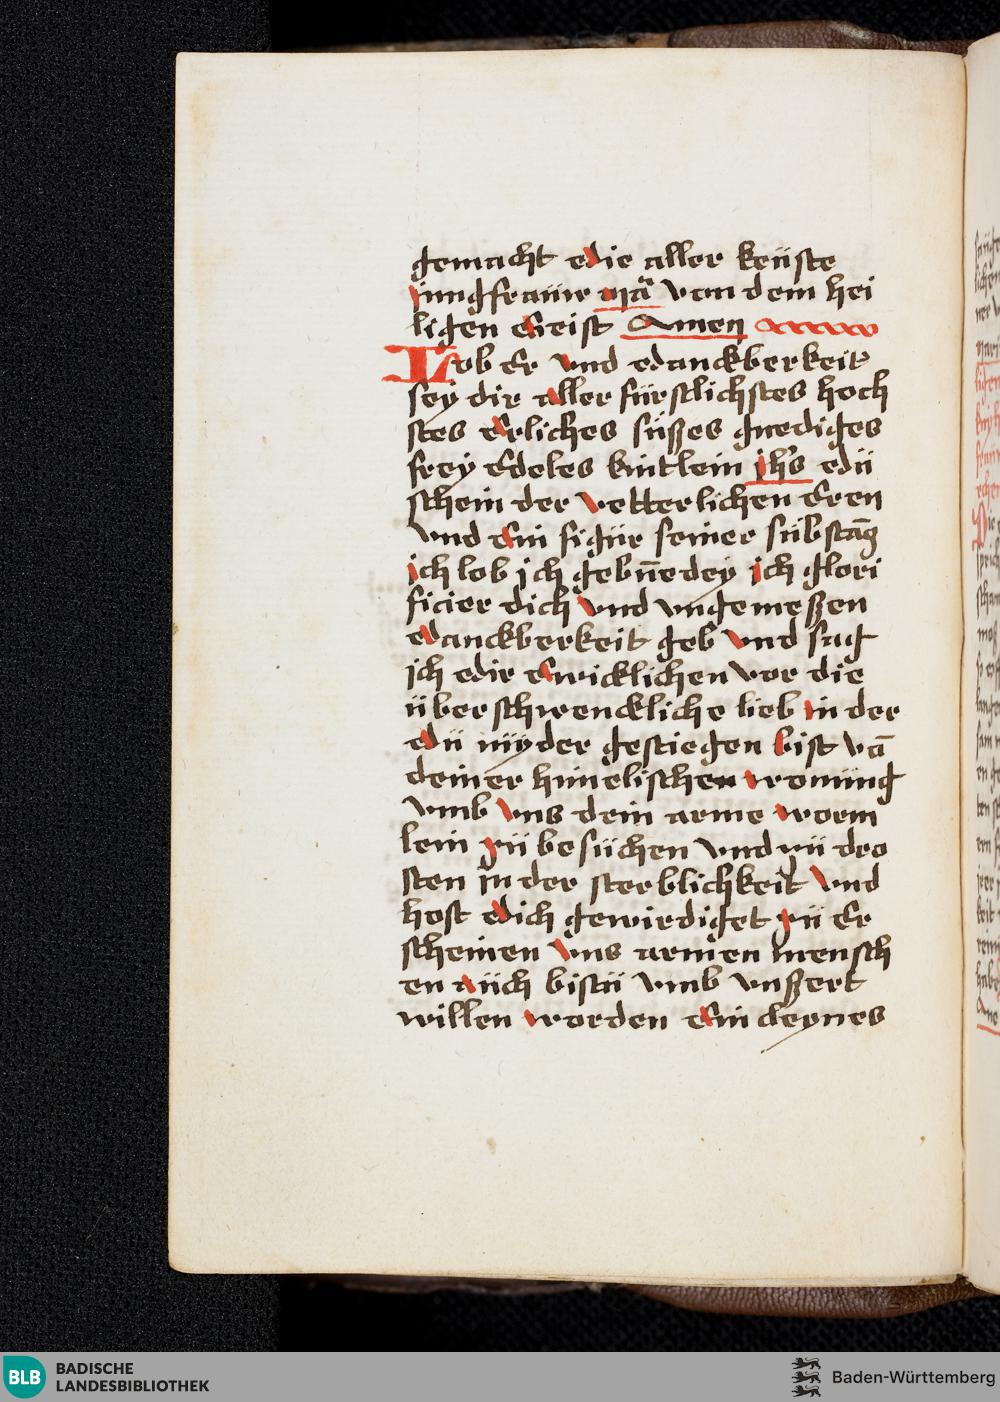 gemacht die aller keüste
jungfraüw mā von dem hei
ligen Geist Amen
Lob Er vnd danckberkeit
sey dir aller fürstlichstes hoch
stes Erliches süßes gnediges
frey Edeles kintlein jh's dü
schein der vetterlichen Eren
vnd Ein figür seiner sübstāᵹ
jch lob jch gebn̄edey jch glori
ficier dich vnd vngemeßen
danckberkeit geb vnd sag
jch dir Ewicklichen vor die
überschwenckliche lieb in der
dü nÿder gestiegen bist vā
deiner himelischen womüng
vmb vns dein arme worm
lein zü besüchen vnd zü dro
sten jn der sterblichkeit vnd
host dich gewirdiget zü Er
scheinen vns armen mensch
en aüch bistü vmb vnßert
willen worden Ein cleynes
BLB BADISCHE
LANDESBIBLIOTHEK
Baden-Württemberg